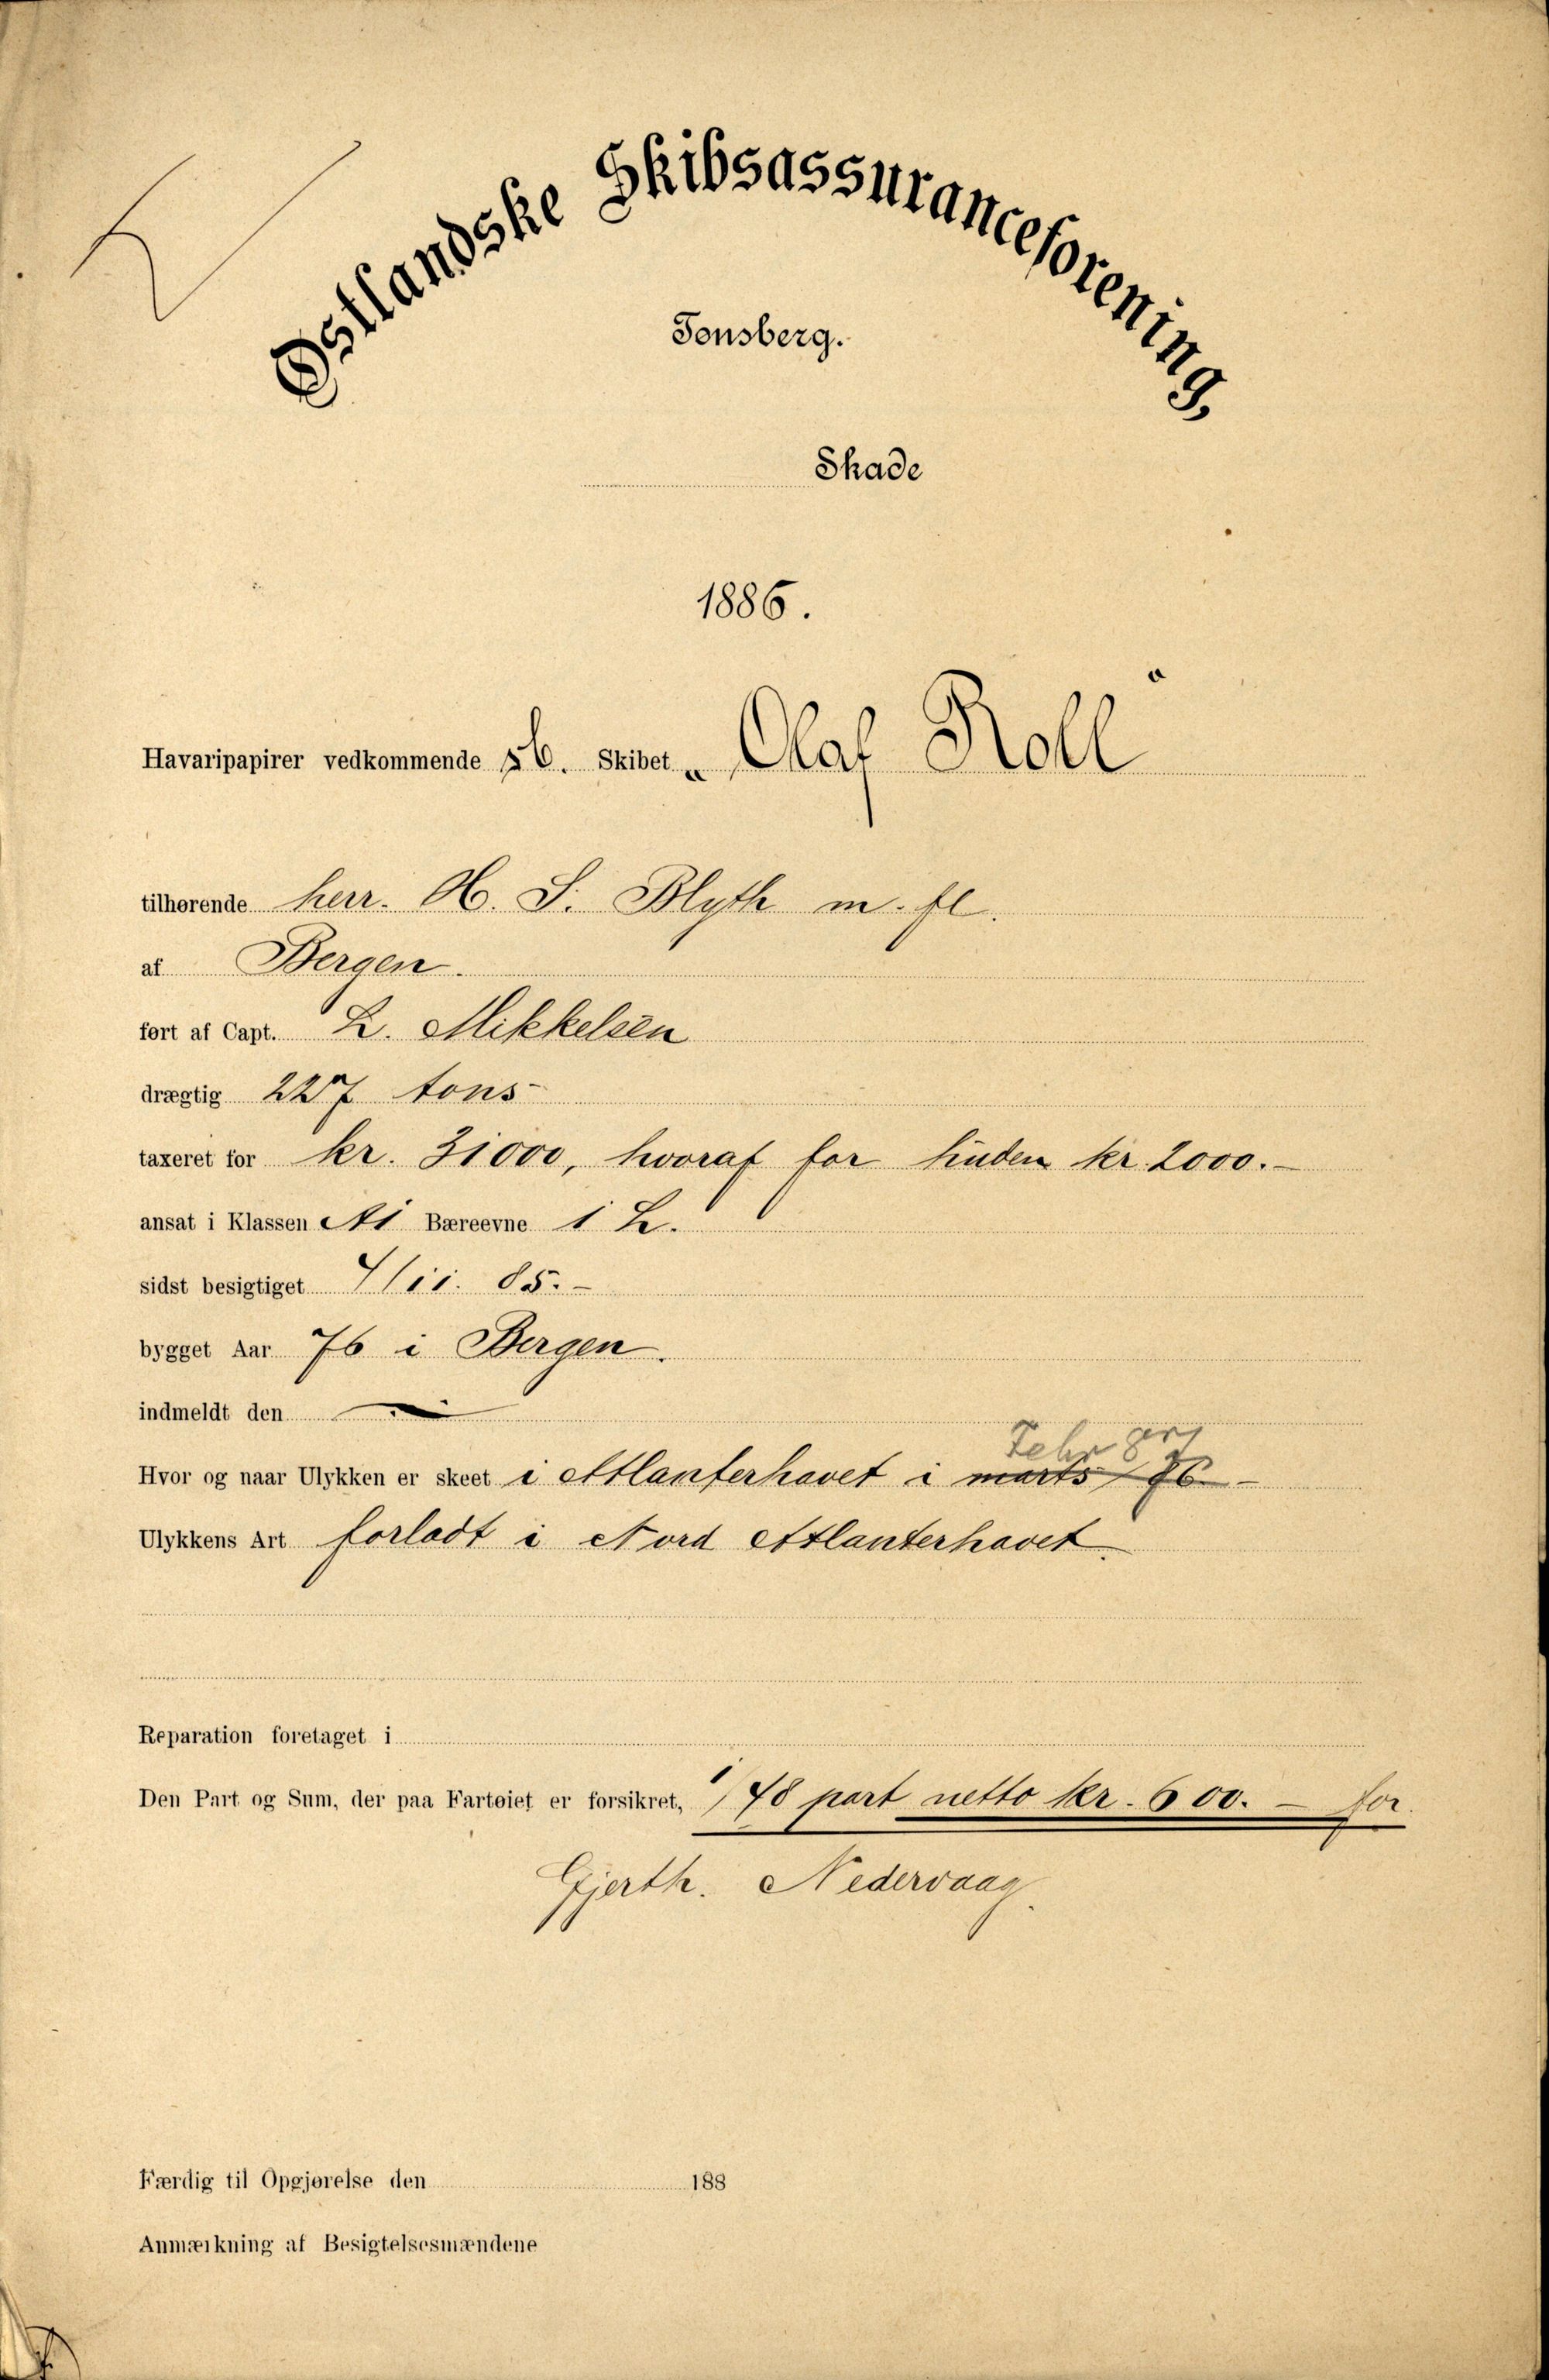 Østlandske Skibsassuranceforening,
Tønsberg.
Skade
1886.
Havaripapirer vedkommende Skibet „Olaf Roll"
tilhørende herr. H. S. Blyth m. fl.
af Bergen.
ført af Capt. L. Mikkelsen
drægtig 227 tons
taxeret for kr. 31000, hvoraf for huden kr. 2000.-
ansat i Klassen A1 Bæreevne 1 L.
sidst besigtiget 85.-
bygget Aar 76 i Bergen.
indmeldt den
Febr
Hvor og naar Ulykken er skeet i Atlanterhavet i marts
Ulykkens Art forladt i Nord Atlanterhavet.
Reparation foretaget i
Den Part og Sum, der paa Fartøiet er forsikret, 1/48 part netto kr. 600. - for
Gjerth. Nedervaag.
Færdig til Opgjørelse den 188
Anmærkning af Besigtelsesmændene